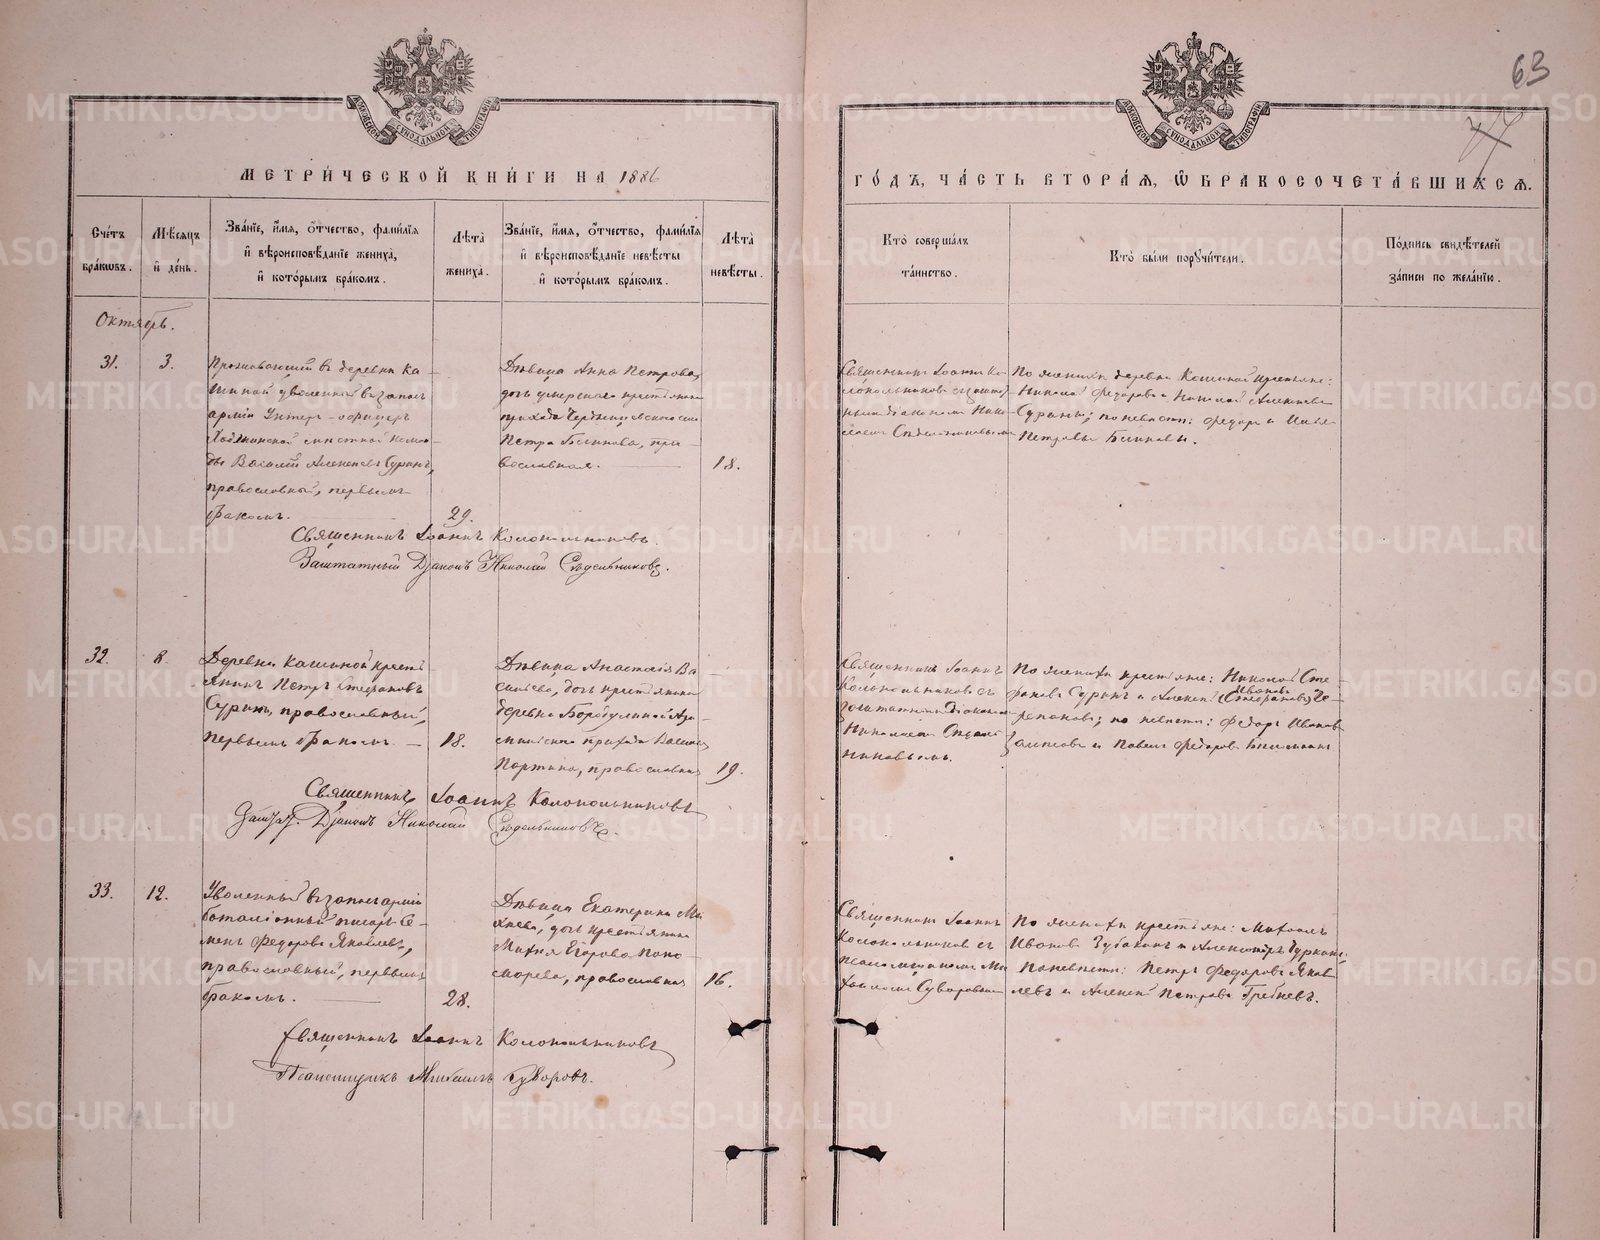 63
МЕТРИЧЕСКОЙ КНИГИ НА 1886
ГОДЪ, ЧАСТЬ ВТОРАЯ, Ѡ БРАКОСОЧЕТАВШИХСЯ.
Счетъ браковъ.
Мѣсяцъ и день.
Званіе, имя, отчество, фамилія
и вѣроисповѣданіе жениха,
и которымъ бракомъ.
Лѣта жениха.
Званіе, имя, отчество, фамилія
и вѣроисповѣданіе невѣсты
и которымъ бракомъ.
Лѣта невѣсты.
Кто совершалъ
таинство.
Кто были поручители.
Подпись свидѣтелей
записи по желанію.
Октябрь.
31. 3.
Проживающій въ деревни Ка-
шиной уволенный въ запасъ
арміи Унтеръ-офицеръ
мѣстной коман-
ды Василій Алексѣевъ Суринъ,
православный, первымъ
бракомъ.
29.
Дѣвица Анна Петрова,
дочь умершаго крестьянина
прихода села
Петра Беликова, пра-
вославная.
18.
Священникъ Іоаннъ Ко-
локольниковъ съ заштат-
нымъ діакономъ Нико-
лаемъ Сѣдельниковымъ
По женихѣ деревни Кашиной крестьяне:
Николай Федоровъ и Николай Алексѣевъ
Сурины; по невѣсти: Федоръ и
Петровы Беликовы.
Священникъ Іоаннъ Колокольниковъ.
Заштатный Діаконъ Николай Сѣдельниковъ.
32. 8.
Деревни Кашиной кресть-
янинъ Петръ Стефановъ
Суринъ, православный,
первымъ бракомъ.
18.
Дѣвица Анастасія Ва-
сильева, дочь крестьянина
деревни Бородулиной
прихода Василія
православная
19.
Священникъ Іоаннъ
Колокольниковъ съ
заштатнымъ Діакономъ
Николаемъ Сѣдель-
никовымъ.
По женихѣ крестьяне: Николай Сте-
фановъ Суринъ и Алексѣй Ивановъ Че-
репановъ; по невѣсти: Федоръ Ивановъ
и Павелъ Федоровъ
Священникъ Іоаннъ Колокольниковъ
Заштат. Діаконъ Николай Сѣдельниковъ.
33. 12.
Уволенный въ запасъ арміи
баталіонный писарь Се-
менъ Федоровъ Яковлевъ,
православный, первымъ
бракомъ.
28.
Дѣвица Екатерина Ми-
хѣева, дочь крестьянина
Михея Егорова Поно-
морева, православная
16.
Священникъ Іоаннъ
Колокольниковъ съ
псаломщикомъ Ми-
хаиломъ Суворовымъ
По женихѣ крестьяне: Михаилъ
Ивановъ Зубакинъ и Александръ
По невѣсти: Петръ Федоровъ Яков-
левъ и Алексѣй Петровъ Гребневъ.
Священникъ Іоаннъ Колокольниковъ
Псаломщикъ Михаилъ Суворовъ.
METRIKI.GASO-URAL.RU